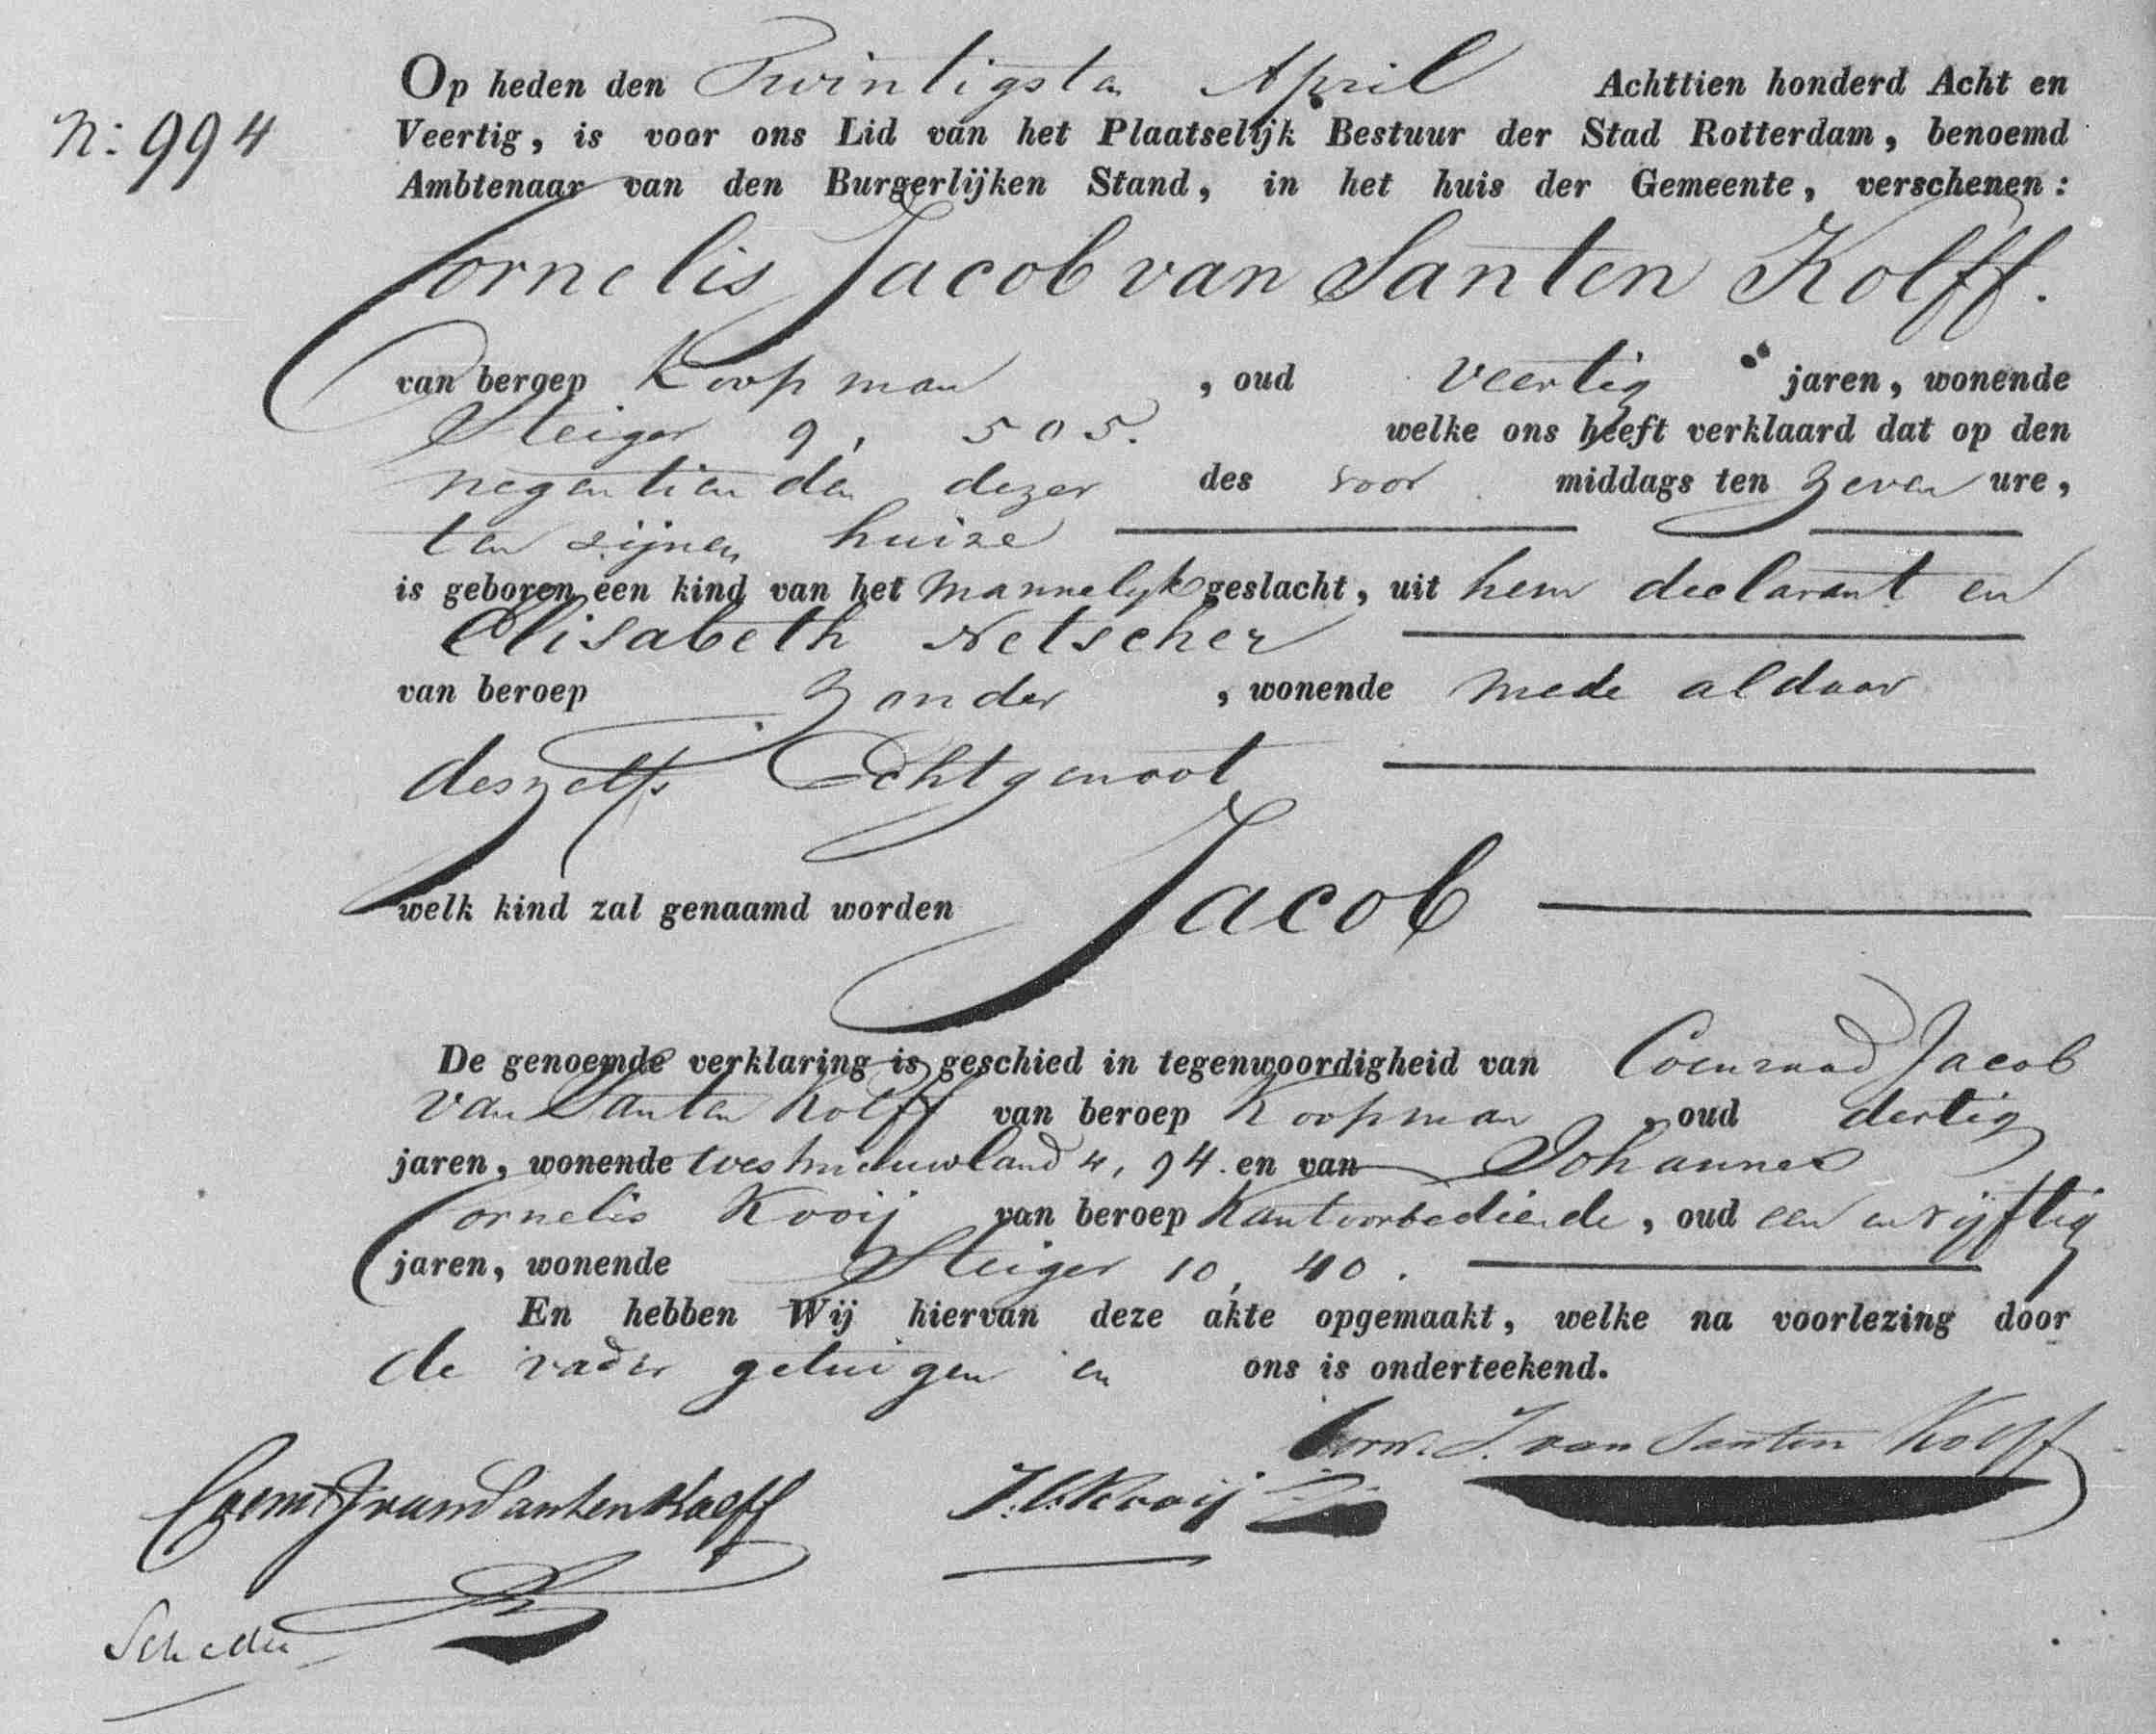 N: 994
Op heden den Twintigsten April Achttien honderd Acht en
Veertig, is voor ons Lid van het Plaatselijk Bestuur der Stad Rotterdam, benoemd
Ambtenaar van den Burgerlijken Stand, in het huis der Gemeente, verschenen:
Cornelis Jacob van Santen Kolff.
van beroep Koopman, oud veertig jaren, wonende
Steiger 9, 505. welke ons heeft verklaard dat op den
negentienden dezer des voor middags ten zeven ure,
ten zijnen huize
is geboren een kind van het mannelyk geslacht, uit hem declarant en
Elisabeth Netscher
van beroep zonder, wonende mede aldaar
deszelfs Echtgenoot
welk kind zal genaamd worden Jacob
De genoemde verklaring is geschied in tegenwoordigheid van Coenraad Jacob
van Santen Kolff van beroep Koopman, oud dertig
jaren, wonende westnieuwland 4, 94. en van Johannes
Cornelis Kooij van beroep Kantoorbediende, oud een en vijftig
jaren, wonende Steiger 10, 40.
En hebben Wij hiervan deze akte opgemaakt, welke na voorlezing door
de vader getuigen en ons is onderteekend.
Corns. J. van Santen Kolff
Coenr J van Santen Kolff J. C. Kooij